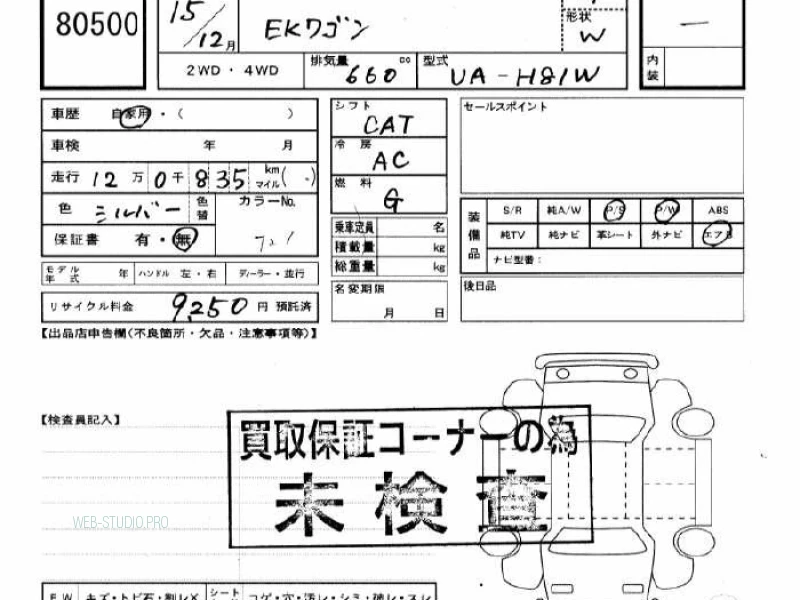 80500
15/12月
EKワゴン
形状
W
内装
2WD・4WD
排気量 660 cc
型式 UA-H81W
車歴 自家用・( )
車検 年 月
走行 12万 0千 835 km マイル( )
色 シルバー 色替 カラーNo.
保証書 有・無
モデル年式 年 ハンドル 左・右 ディーラー・並行
リサイクル料金 9,250 円 預託済
シフト CAT
冷房 AC
燃料 G
乗車定員 名
積載量 kg
総重量 kg
名変期限
月 日
セールスポイント
装備品
S/R 純A/W P/S P/W ABS
純TV 純ナビ 革シート 外ナビ エアB
ナビ型番:
後日品
【出品店申告欄(不良箇所・欠品・注意事項等)】
【検査員記入】
買取保証コーナーの為
未検査
WEB-STUDIO.PRO